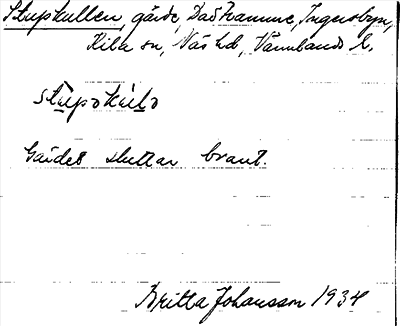 Stupkullen, gärde, Dadhamme, Ingersbyn,
Kila sn, Näs hd, Värmlands l.
stupokulo
Gärdet sluttar brant.
Britta Johansson 1934